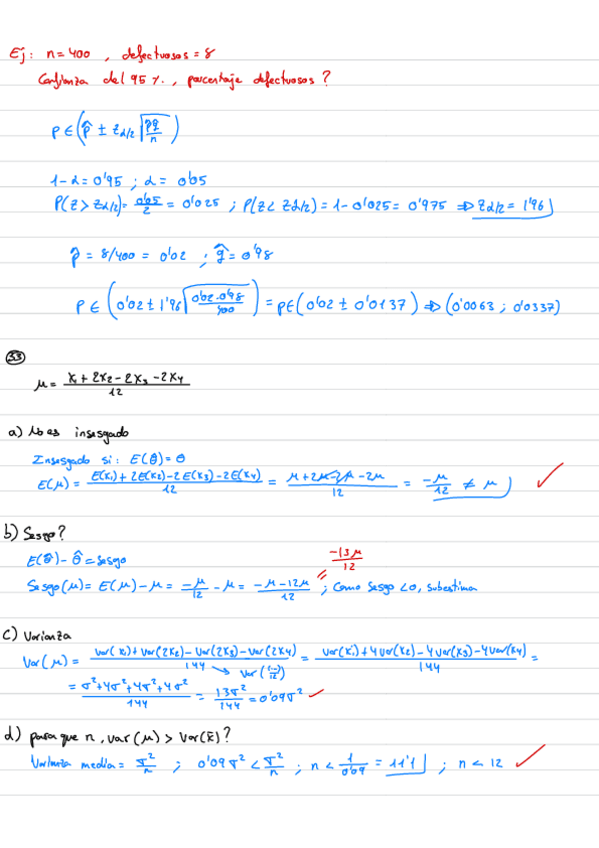 Ej: n=400 , defectuosos = 8
Confianza del 95 %. , porcentaje defectuosos?
p ∈ (p̂ ± z_{α/2} √(p̂q̂/n))
1-α = 0'95 ; α = 0'05
P(Z > Zα/2) = 0'05/2 = 0'025 ; P(Z < Zα/2) = 1 - 0'025 = 0'975 ⇒ Zα/2 = 1'96
p̂ = 8/400 = 0'02 ; q̂ = 0'98
P ∈ (0'02 ± 1'96 √(0'02·0'98/400)) = p ∈ (0'02 ± 0'0137) ⇒ (0'0063 ; 0'0337)
33
μ = (x₁ + 2x₂ - 2x₃ - 2x₄)/12
a) No es insesgado
Insesgado si: E(θ̂) = θ
E(μ) = (E(x₁) + 2E(x₂) - 2E(x₃) - 2E(x₄))/12 = (μ + 2μ - 2μ - 2μ)/12 = -μ/12 ≠ μ
b) Sesgo?
-13μ/12
E(θ̂) - θ̂ = Sesgo
Sesgo(μ) = E(μ) - μ = -μ/12 - μ = (-μ - 12μ)/12 ; Como Sesgo <0, subestima
c) Varianza
Var(μ) = (Var(x₁) + Var(2x₂) - Var(2x₃) - Var(2x₄))/144 = (Var(x₁) + 4Var(x₂) - 4Var(x₃) - 4Var(x₄))/144 =
= (σ² + 4σ² + 4σ² + 4σ²)/144 = 13σ²/144 = 0'09σ²
d) para que n, var(μ) > Var(x̄)?
Varianza media = σ²/n ; 0'09σ² < σ²/n ; n < 1/0'09 = 11'1 ; n < 12